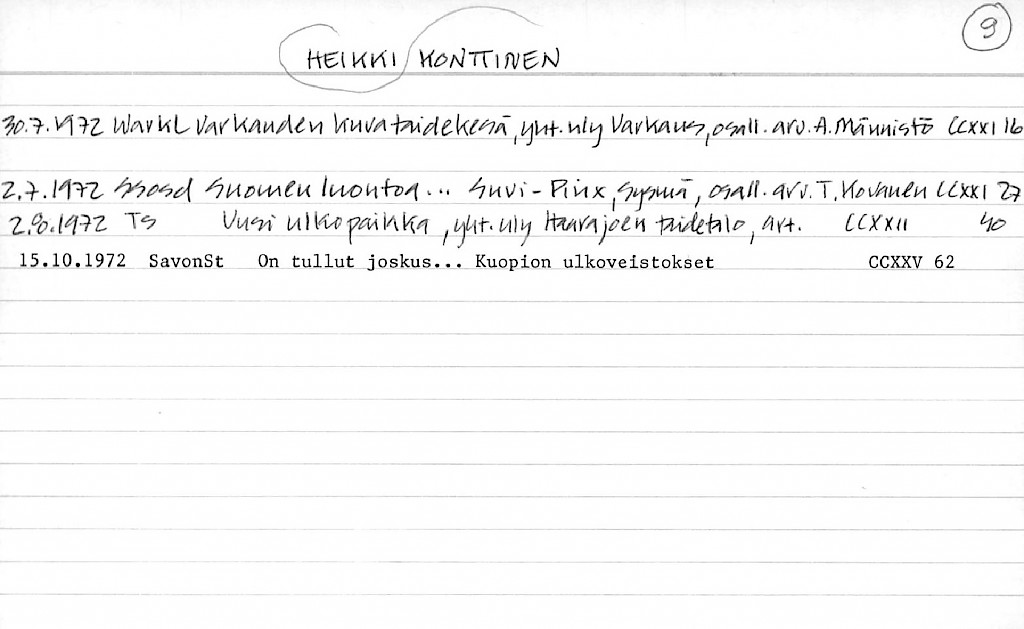 9
HEIKKI KONTTINEN
30.7.1972 WarkL Varkauden kuvataidekesä, yht.nly Varkaus, osall. arv. A. Männistö CCXXI 16
2.7.1972 SSosd Suomen luontoa... Suvi-Pinx, Sysmä, osall. arv. T. Kovanen CCXXI 27
2.8.1972 TS Uusi ulkopaikka, yht.nly Haarajoen taidetalo, art. CCXXII 40
15.10.1972 SavonSt On tullut joskus... Kuopion ulkoveistokset CCXXV 62